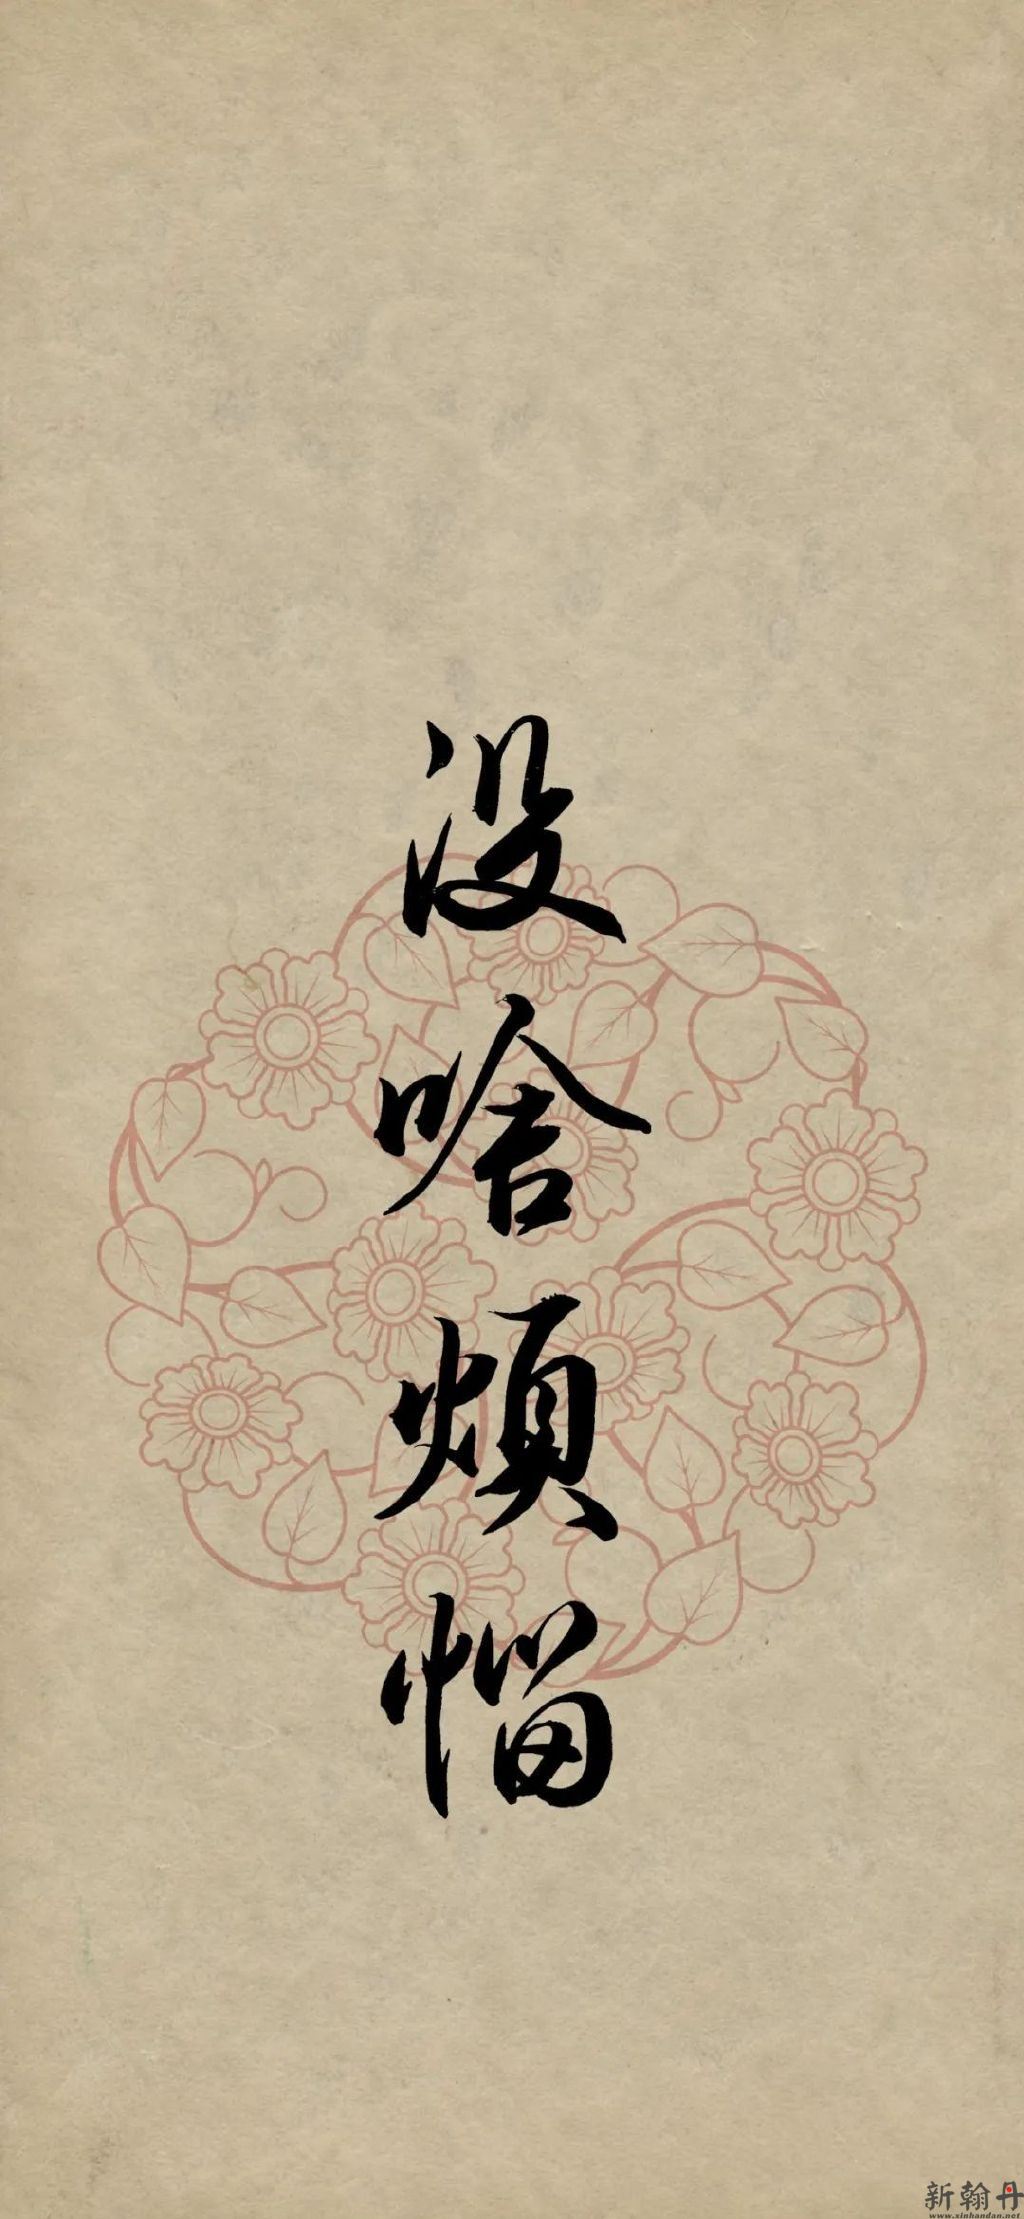 没啥烦恼
新翰丹
www.xinhandan.net